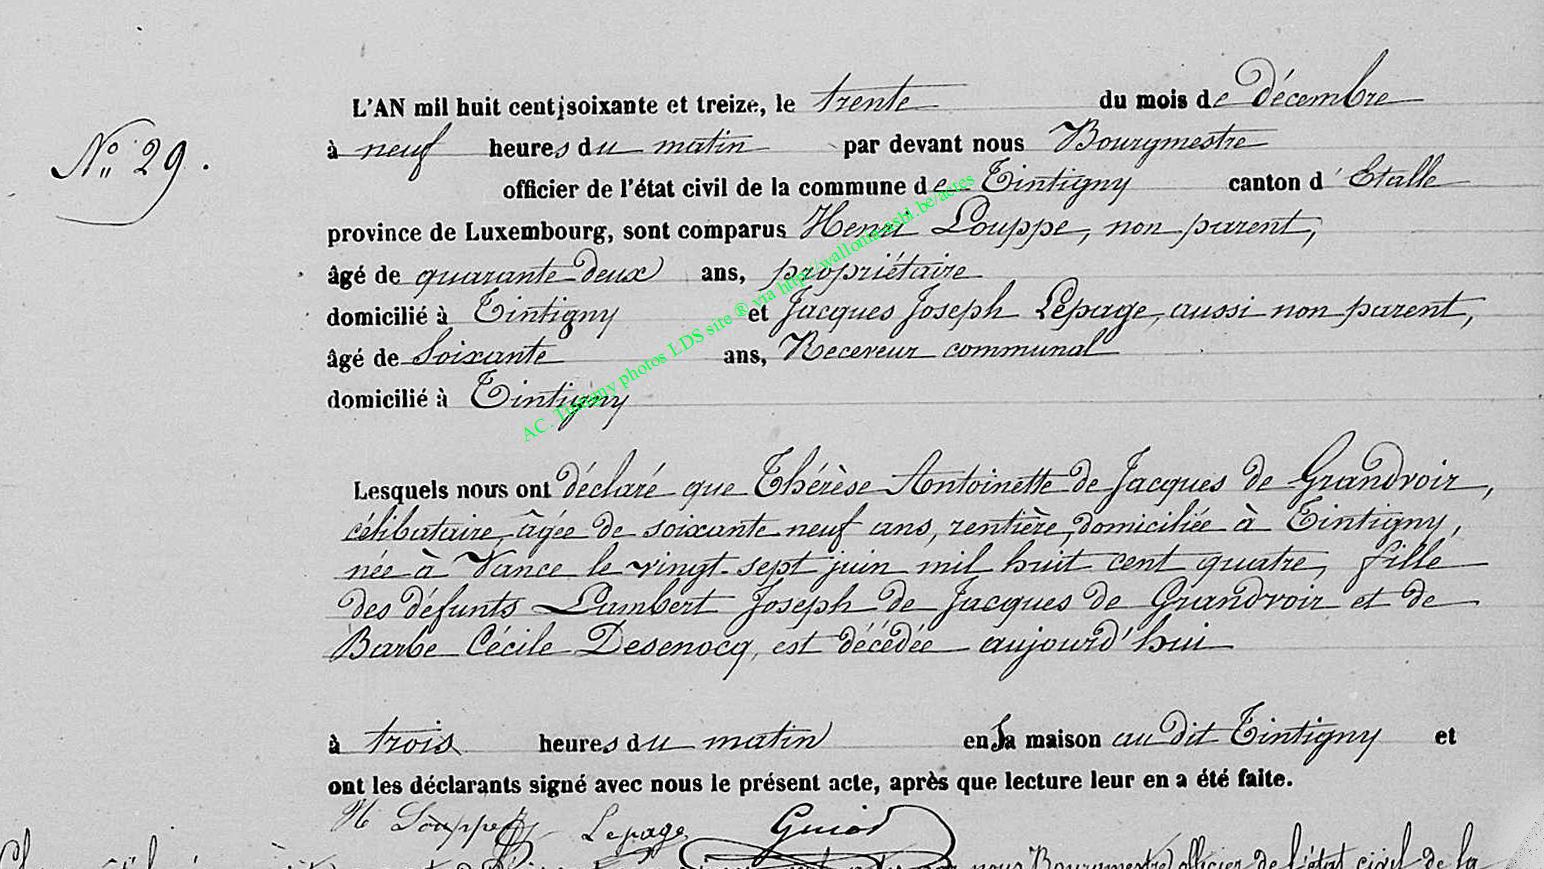 L'AN mil huit cent soixante et treize, le trente du mois de Décembre
N° 29.
à neuf heures du matin par devant nous Bourgmestre
officier de l'état civil de la commune de Tintigny canton d'Etalle
province de Luxembourg, sont comparus Henri Louppe, non parent,
âgé de quarante-deux ans, propriétaire
domicilié à Tintigny et Jacques Joseph Lepage, aussi non parent,
âgé de soixante ans, Receveur communal
domicilié à Tintigny
AC. Tintigny photos LDS site ® via http://wallonia-asbl.be/actes
Lesquels nous ont déclaré que Thérèse Antoinette de Jacques de Grandvoir,
célibataire, âgée de soixante neuf ans, rentière, domiciliée à Tintigny,
née à Vance le vingt-sept juin mil huit cent quatre, fille
des défunts Lambert Joseph de Jacques de Grandvoir et de
Barbe Cécile Desenocq, est décédée aujourd'hui
à trois heures du matin en sa maison au dit Tintigny et
ont les déclarants signé avec nous le présent acte, après que lecture leur en a été faite.
H Louppe Lepage Guiod
nous Bourgmestre officier de l'état civil de la